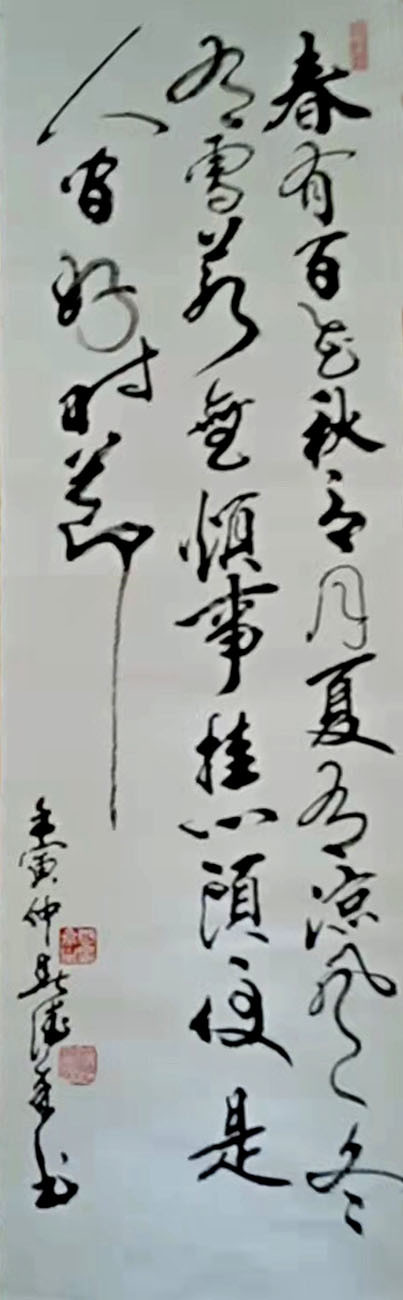 春有百花秋有月夏有凉风冬
有雪若無煩事挂心頭便是
人间好时節
壬寅仲春书